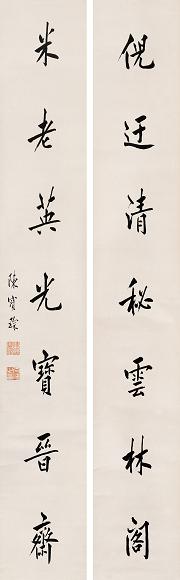 倪迂清秘雲林閣
米老英光寶晉齋
陳寶琛